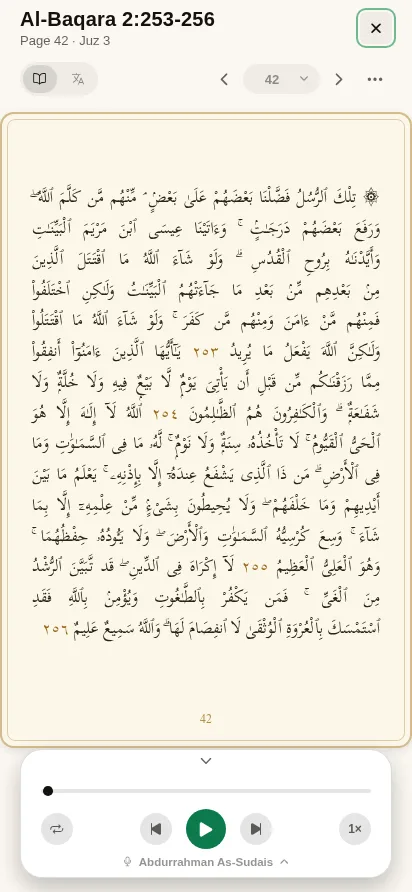 Al-Baqara 2:253-256
Page 42 · Juz 3
42
۞ تِلْكَ ٱلرُّسُلُ فَضَّلْنَا بَعْضَهُمْ عَلَىٰ بَعْضٍۢ ۘ مِّنْهُم مَّن كَلَّمَ ٱللَّهُ ۖ
وَرَفَعَ بَعْضَهُمْ دَرَجَـٰتٍۢ ۚ وَءَاتَيْنَا عِيسَى ٱبْنَ مَرْيَمَ ٱلْبَيِّنَـٰتِ
وَأَيَّدْنَـٰهُ بِرُوحِ ٱلْقُدُسِ ۗ وَلَوْ شَآءَ ٱللَّهُ مَا ٱقْتَتَلَ ٱلَّذِينَ
مِنۢ بَعْدِهِم مِّنۢ بَعْدِ مَا جَآءَتْهُمُ ٱلْبَيِّنَـٰتُ وَلَـٰكِنِ ٱخْتَلَفُوا۟
فَمِنْهُم مَّنْ ءَامَنَ وَمِنْهُم مَّن كَفَرَ ۚ وَلَوْ شَآءَ ٱللَّهُ مَا ٱقْتَتَلُوا۟
وَلَـٰكِنَّ ٱللَّهَ يَفْعَلُ مَا يُرِيدُ ٢٥٣ يَـٰٓأَيُّهَا ٱلَّذِينَ ءَامَنُوٓا۟ أَنفِقُوا۟
مِمَّا رَزَقْنَـٰكُم مِّن قَبْلِ أَن يَأْتِىَ يَوْمٌۭ لَّا بَيْعٌۭ فِيهِ وَلَا خُلَّةٌۭ وَلَا
شَفَـٰعَةٌۭ ۗ وَٱلْكَـٰفِرُونَ هُمُ ٱلظَّـٰلِمُونَ ٢٥٤ ٱللَّهُ لَآ إِلَـٰهَ إِلَّا هُوَ
ٱلْحَىُّ ٱلْقَيُّومُ ۚ لَا تَأْخُذُهُۥ سِنَةٌۭ وَلَا نَوْمٌۭ ۚ لَّهُۥ مَا فِى ٱلسَّمَـٰوَٰتِ وَمَا
فِى ٱلْأَرْضِ ۗ مَن ذَا ٱلَّذِى يَشْفَعُ عِندَهُۥٓ إِلَّا بِإِذْنِهِۦ ۚ يَعْلَمُ مَا بَيْنَ
أَيْدِيهِمْ وَمَا خَلْفَهُمْ ۖ وَلَا يُحِيطُونَ بِشَىْءٍۢ مِّنْ عِلْمِهِۦٓ إِلَّا بِمَا
شَآءَ ۚ وَسِعَ كُرْسِيُّهُ ٱلسَّمَـٰوَٰتِ وَٱلْأَرْضَ ۖ وَلَا يَـُٔودُهُۥ حِفْظُهُمَا ۚ
وَهُوَ ٱلْعَلِىُّ ٱلْعَظِيمُ ٢٥٥ لَآ إِكْرَاهَ فِى ٱلدِّينِ ۖ قَد تَّبَيَّنَ ٱلرُّشْدُ
مِنَ ٱلْغَىِّ ۚ فَمَن يَكْفُرْ بِٱلطَّـٰغُوتِ وَيُؤْمِنۢ بِٱللَّهِ فَقَدِ
ٱسْتَمْسَكَ بِٱلْعُرْوَةِ ٱلْوُثْقَىٰ لَا ٱنفِصَامَ لَهَا ۗ وَٱللَّهُ سَمِيعٌ عَلِيمٌ ٢٥٦
42
1×
Abdurrahman As-Sudais